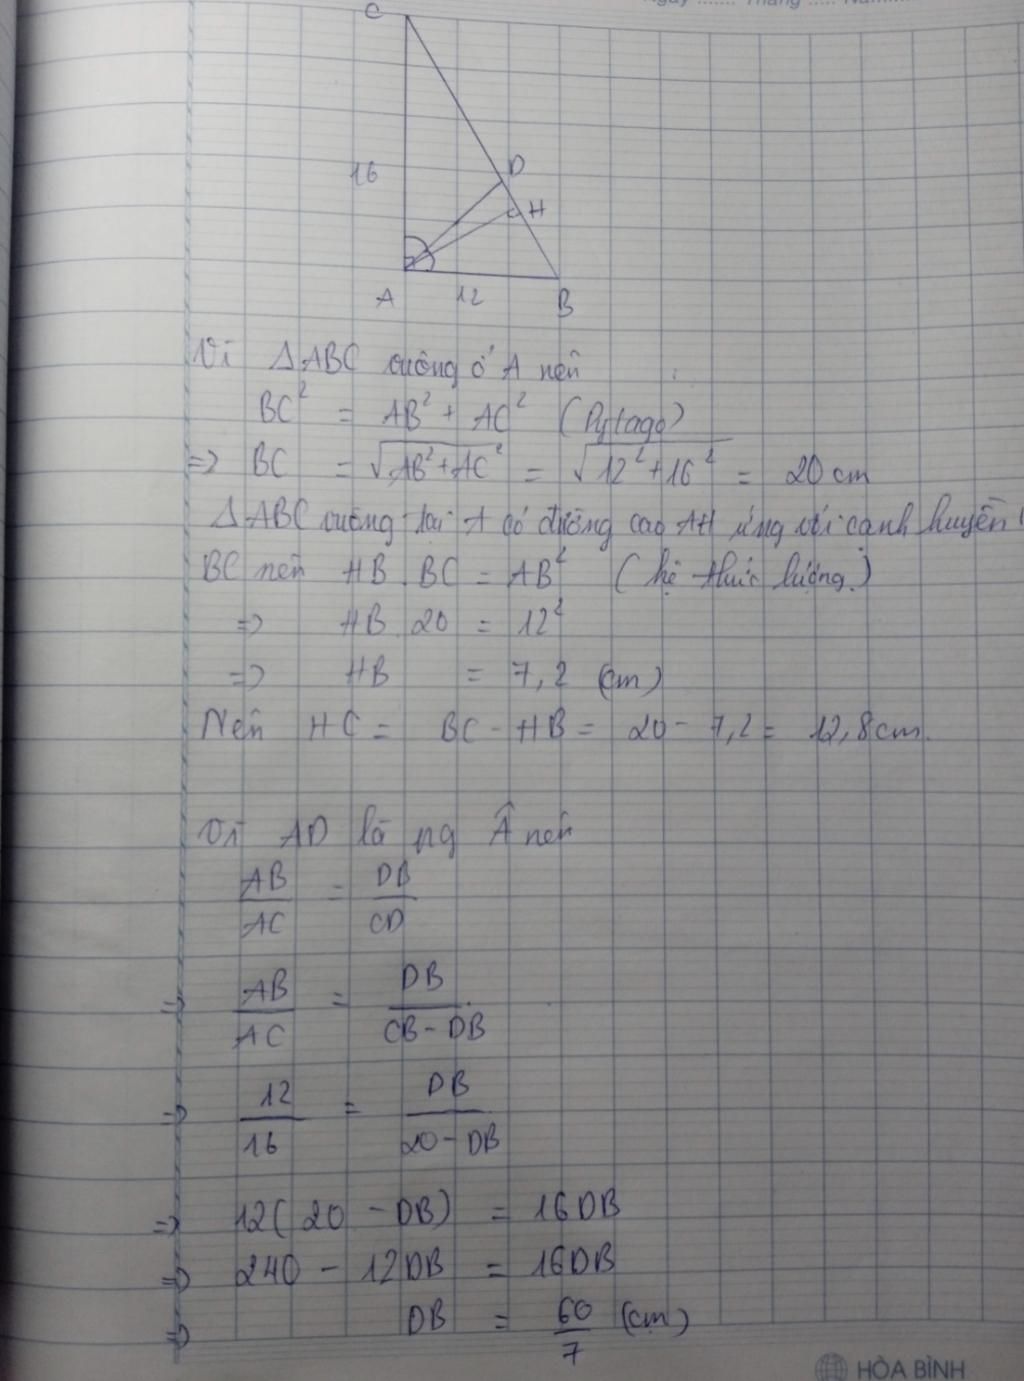 Ngày ....... Tháng ..... Năm.......
C
16
D
H
A 12 B
Vì ΔABC vuông ở A nên
BC² = AB² + AC² (Pytago)
=> BC = √AB²+AC² = √12²+16² = 20 cm
ΔABC vuông tại A có đường cao AH ứng với cạnh huyền
BC nên HB.BC = AB² (hệ thức lượng)
=> HB.20 = 12²
=> HB = 7,2 (cm)
Nên HC = BC - HB = 20 - 7,2 = 12,8cm.
Vì AD là pg Â nên
AB/AC = DB/CD
=> AB/AC = DB/CB-DB
=> 12/16 = DB/20-DB
=> 12(20 - DB) = 16DB
=> 240 - 12DB = 16DB
=> DB = 60/7 (cm)
HÒA BÌNH